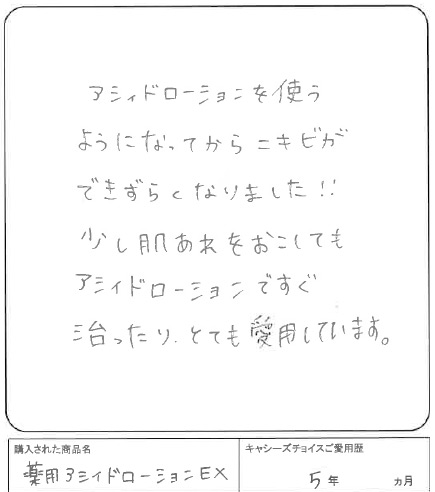 アシィドローションを使う
ようになってからニキビが
できずらくなりました!!
少し肌あれをおこしても
アシィドローションですぐ
治ったり、とても愛用しています。
購入された商品名
薬用アシィドローションEX
キャシーズチョイスご愛用歴
5年 ヵ月